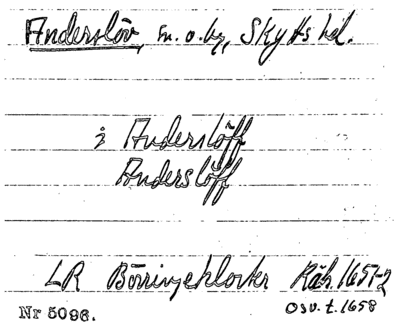 Anderslöv, sn. o. by, Skytts hd.
i Anderslöff
Anderslöff
LR Börringekloster Räk. 1651-2
Osv. t. 1658
Nr 5096.